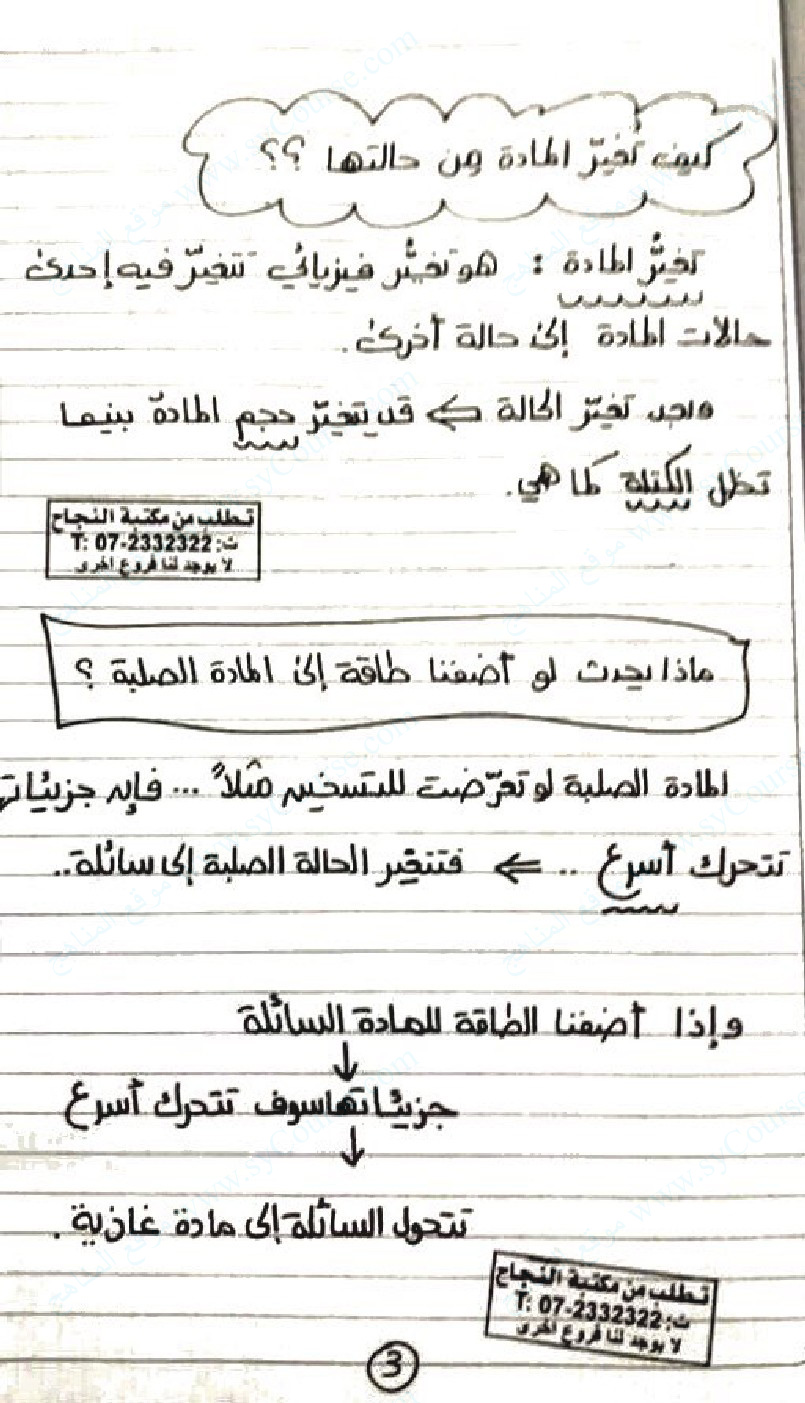 كيف تُغيّر المادة من حالتها ؟؟
تغيُّر المادة : هو تغيُّر فيزيائي تتغيّر فيه إحدى
حالات المادة إلى حالة أخرى.
وعند تغيّر الحالة ⇐ قد يتغيّر حجم المادة بينما
تظل الكتلة كما هي.
تطلب من مكتبة النجاح
ت: 2332322-07 :T
لا يوجد لنا فروع اخرى
ماذا يحدث لو أضفنا طاقة إلى المادة الصلبة ؟
المادة الصلبة لو تعرّضت للتسخين مثلاً ... فإن جزيئاتها
تتحرك أسرع .. ⇐ فتتغير الحالة الصلبة إلى سائلة..
وإذا أضفنا الطاقة للمادة السائلة
↓
جزيئاتها سوف تتحرك أسرع
↓
تتحول السائلة إلى مادة غازية .
تطلب من مكتبة النجاح
ت: 2332322-07 :T
لا يوجد لنا فروع اخرى
3